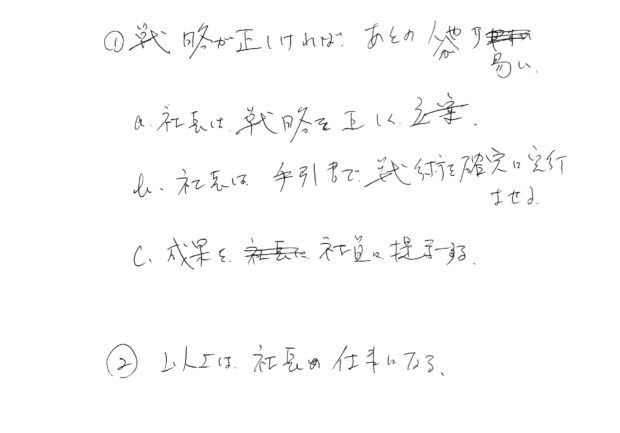 ① 戦略が正しければ、あとの人がやり易い、
a. 社長は、戦略を正しく立案、
b、社長は、手引書で、戦術を確実に実行させる、
C、成果を、社員に提示する、
② 以上は、社長の仕事になる、